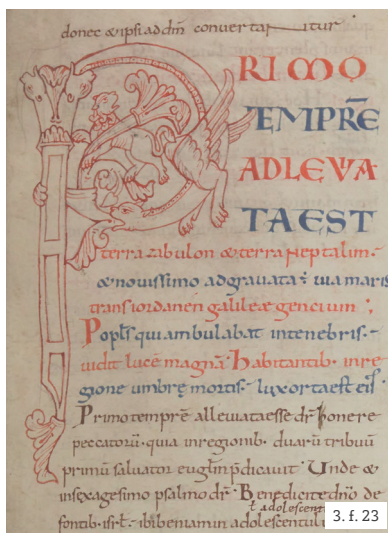 donec & ipsi ad dm̄ convertantur itur
PRIMO
TEMPR̄E
ADLEVA
TA EST
terra zabulon & terra neptalim·
& novissimo adgravata ÷ via maris
trans iordanen galileæ gencium ;
Popl̄s qui ambulabat intenebris·
vidit lucē magnā· habitantib· inre
gione umbrę mortis· lux orta est eis·
Primo tempr̄e alleviata esse dr̄ honere
peccatorū· quia inregionib· duarū tribuū
primū salvator eugl̄m p̄dicavit· Unde &
insexagesimo psalmo dr̄· Benedicite dn̄o de
ł adolescent
fontib· isr̄l· ibi beniamin adolescentul
3. f. 23